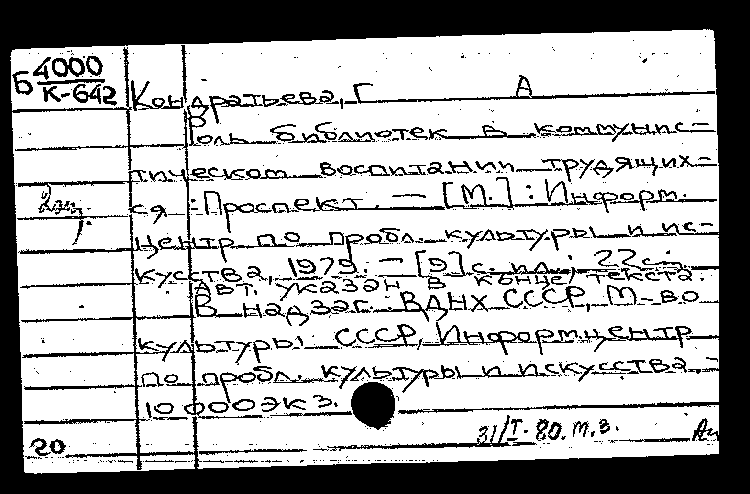 Б 4000
К-642
Кондратьева, Г А
Роль библиотек в коммунис-
тическом воспитании трудящих-
ся : Проспект. — [М.] : Информ.
центр по пробл. культуры и ис-
кусства, 1979. — [9] с. ил.; 22 см.
Авт. указан в конце текста.
В надзаг.: ВДНХ СССР, М-во
культуры СССР, Информцентр
по пробл. культуры и искусства. -
10 000 экз.
31/I-80. м.з.
20